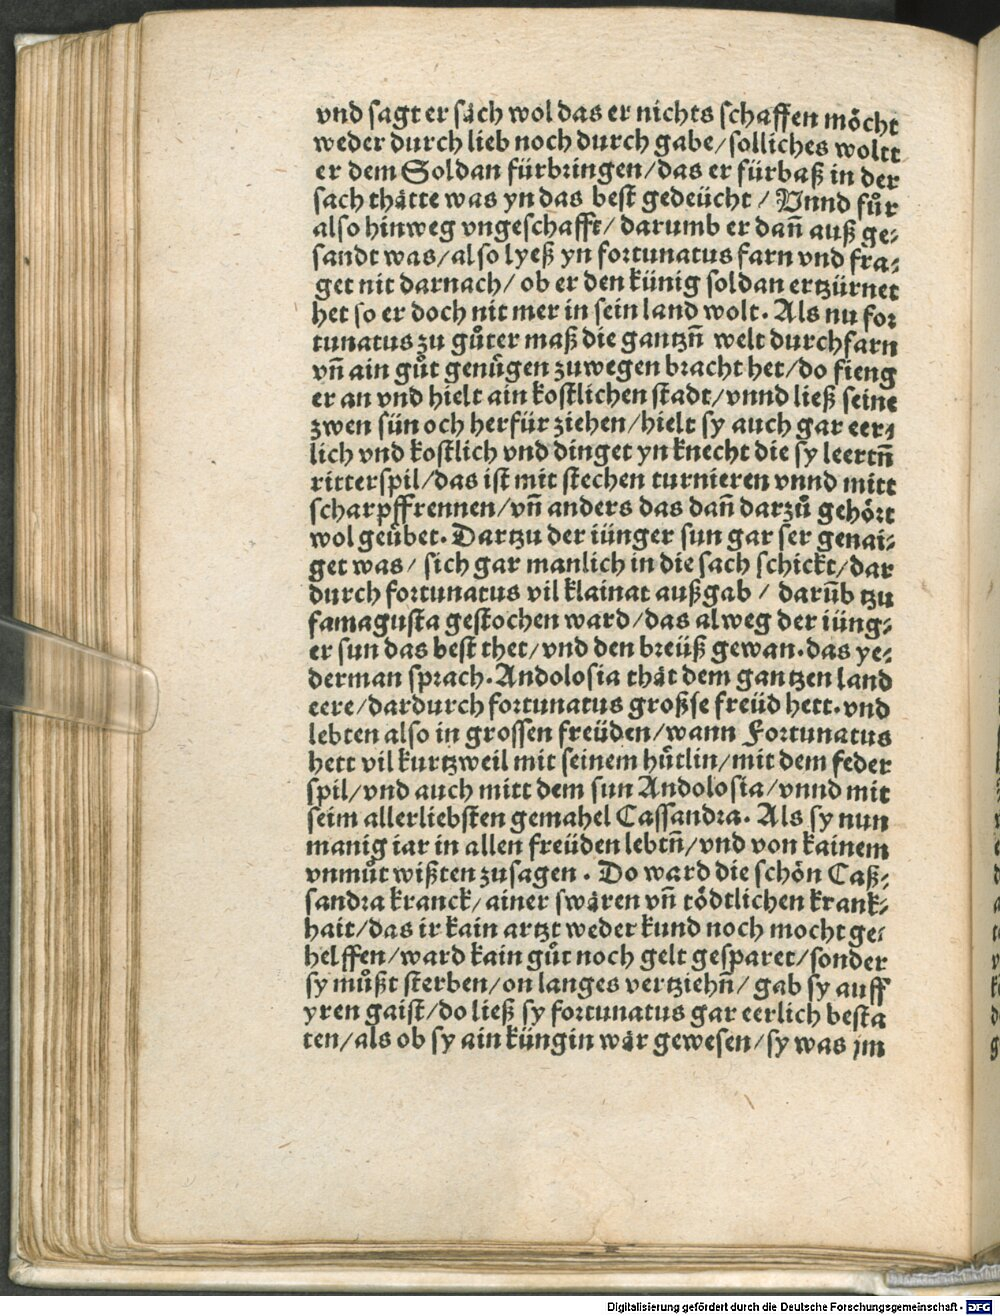 vnd sagt er säch wol das er nichts schaffen möcht
weder durch lieb noch durch gabe/solliches woltt
er dem Soldan fürbringen/das er fürbaß in der
sach thätte was yn das best gedeücht / Vnnd fůr
also hinweg vngeschafft/ darumb er dañ auß ge⸗
sandt was/also lyeß yn fortunatus farn vnd fra⸗
get nit darnach/ ob er den künig soldan ertzürnet
het so er doch nit mer in sein land wolt. Als nu for
tunatus zu gůter maß die gantzñ welt durchfarn
vñ ain gůt genůgen zuwegen bracht het/do fieng
er an vnd hielt ain kostlichen stadt/vnnd ließ seine
zwen sün och herfür ziehen/hielt sy auch gar eer⸗
lich vnd kostlich vnd dinget yn knecht die sy leertñ
ritterspil/das ist mit stechen turnieren vnnd mitt
scharpffrennen/vñ anders das dañ darzů gehört
wol geübet. Dartzu der iünger sun gar ser genai⸗
get was/ sich gar manlich in die sach schickt/dar
durch fortunatus vil klainat außgab / darũb tzu
famagusta gestochen ward/das alweg der iüng⸗
er sun das best thet/vnd den breüß gewan.das ye⸗
derman sprach.Andolosia thät dem gantzen land
eere/dardurch fortunatus großse freüd hett.vnd
lebten also in grossen freüden/wann Fortunatus
hett vil kurtzweil mit seinem hůtlin/mit dem feder
spil/vnd auch mitt dem sun Andolosia/vnnd mit
seim allerliebsten gemahel Cassandra. Als sy nun
manig iar in allen freüden lebtñ/vnd von kainem
vnmůt wißten zusagen . Do ward die schön Caß⸗
sandra kranck/ainer swären vñ tödtlichen krank⸗
hait/das ir kain artzt weder kund noch mocht ge⸗
helffen/ward kain gůt noch gelt gesparet/sonder
sy můßt sterben/on langes vertziehñ/ gab sy auff
yren gaist/do ließ sy fortunatus gar eerlich besta
ten/als ob sy ain küngin wär gewesen/sy was jm
Digitalisierung gefördert durch die Deutsche Forschungsgemeinschaft - DFG